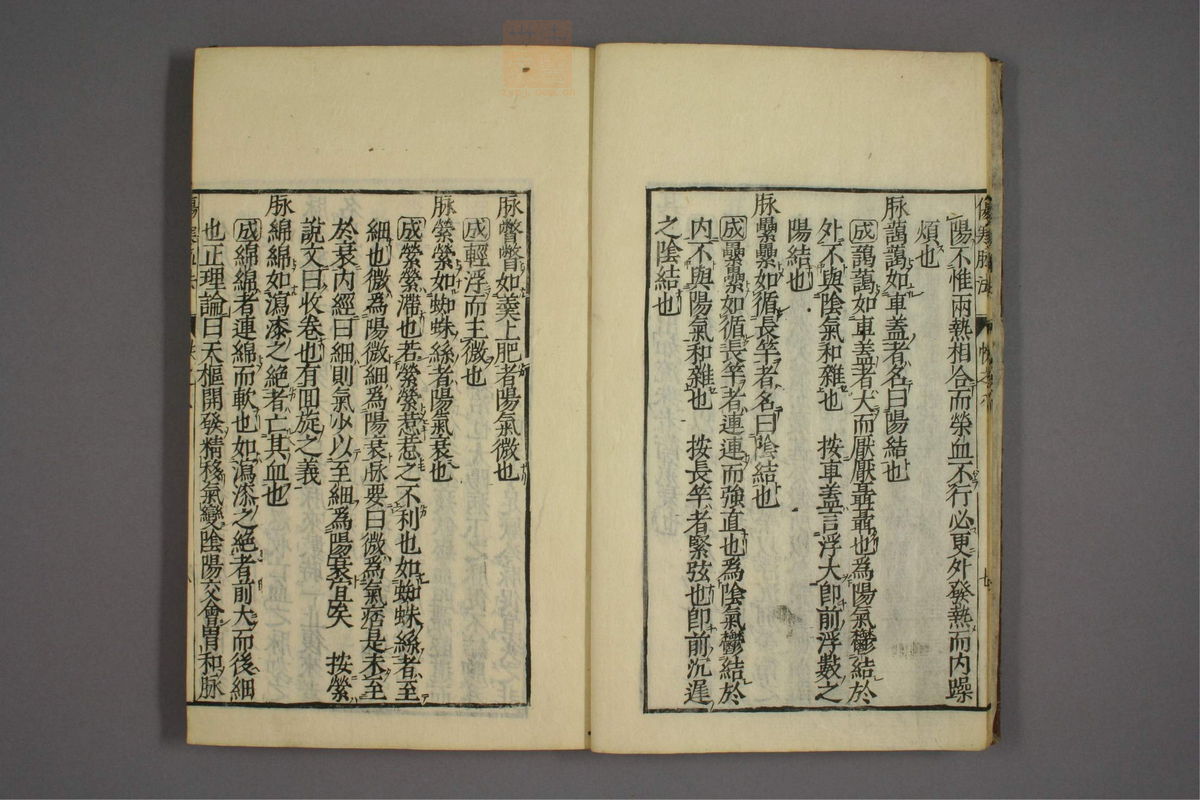 陽不惟兩熱相合而榮血不行必更外發熱而內躁
煩也
脉藹藹如車蓋者名曰陽結也
成藹藹如車蓋者大而厭厭聶聶也為陽氣鬱結於
外不與陰氣和雜也 按車蓋言浮大即前浮數之
陽結也
脉纍纍如循長竿者名曰陰結也
成纍纍如循長竿者連連而強直也為陰氣鬱結於
內不與陽氣和雜也 按長竿者緊弦也即前沉遲
之陰結也
脉瞥瞥如羹上肥者陽氣微也
成輕浮而主微也
脉縈縈如蜘蛛絲者陽氣衰也
成縈縈滯也若縈縈惹惹之不利也如蜘蛛絲者至
細也微為陽微細為陽衰脉要曰微為氣痞是未至
於衰內經曰細則氣少以至細為陽衰宜矣 按縈
說文曰收卷也有回旋之義
脉綿綿如瀉漆之絕者亡其血也
成綿綿者連綿而軟也如瀉漆之絕者前大而後細
也正理論曰天樞開發精移氣變陰陽交會胃和脉